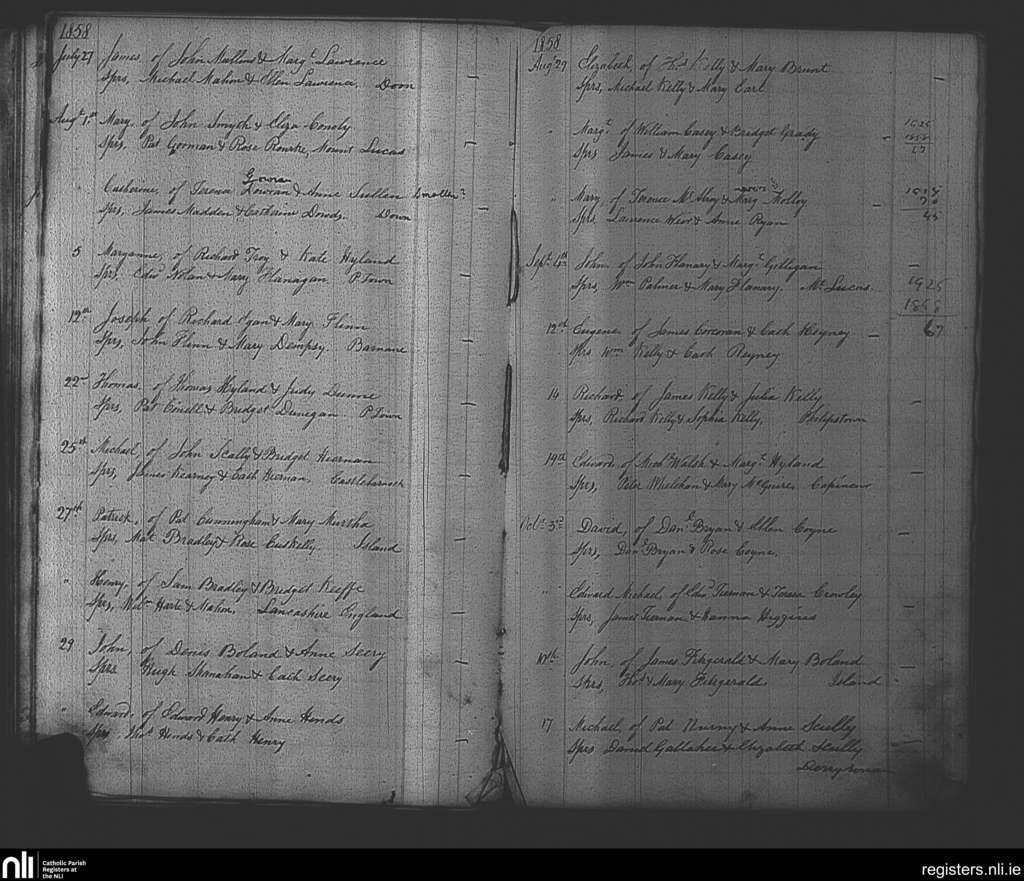 1858
July 27 James of John Mullins & Margt Lawrance
Sprs, Michael Mahon & Ellen Lawrence. Doon
Augt 1st Mary. of John Smyth & Eliza Conoly
Sprs, Pat Gorman & Rose Rourke, Mount Lucas
Gowran
Catherine, of Terence & Anne Scullen
Sprs, James Madden & Catherine Dowds. Down
5 Maryanne, of Richard Troy & Kate Hyland
Sprs. Edwd Nolan & Mary Flanagan. P Town
12th Joseph of Richard Egan & Mary Flinn
Sprs, John Flinn & Mary Dempsy. Barnane
22d Thomas. of Thomas Hyland & Judy Dunne
Sprs, Pat & Bridget Dunegan. P Town
25th Michael, of John Scally & Bridget Kiernan
Sprs, James Kearney & Cath Kiernan.
27th Patrick, of Pat Cunningham & Mary Murtha
Sprs, Mat Bradley & Rose Cuskelly. Island
" Henry, of Sam Bradley & Bridget Keeffe
Sprs, Harte & Mahon. Lancashire England
29 John, of Denis Boland & Anne Seery
Sprs Hugh Shanahan & Cath Seery
" Edward. of Edward Henry & Anne Hinds
Sprs Thos Hinds & Cath Henry
1858
Augt 29 Elizabeth, of Thos Kelly & Mary Brunt
Sprs, Michael Kelly & Mary Earl
" Margt of William Casey & Bridget Grady
Sprs James & Mary Casey
" Mary of Terence McIlroy & Marg Molloy
Sprs Lawrence Weir & Anne Ryan
Sept 4th John. of John Flanary & Margt Gilligan
Sprs, Wm Palmer & Mary Flanary. Mt Lucas.
1925
1858
67
12th Eugene of James Corcoran & Cath Heyney
Sprs Wm Kelly & Cath Reyney
14 Richard. of James Kelly & Julia Kelly
Sprs, Richard Kelly & Sophia Kelly, Philipstown
19th Edward. of Michl Walsh & Margt Hyland
Sprs, Peter Whelehan & Mary McGuire.
Octr 3d David, of Danl Bryan & Ellen Coyne
Sprs, Danl Bryan & Rose Coyne.
" Edward Michael. of Edwd Tiernan & Teresa Crowley
Sprs, James Tiernan & Hanna Higgins
10th John, of James Fitzgerald & Mary Boland
Sprs, Thos & Mary Fitzgerald. Island
17 Michael, of Pat & Anne Scully
Sprs Daniel Gallaher & Elizabeth Scully
nli
Catholic Parish
Registers at
the NLI
registers.nli.ie